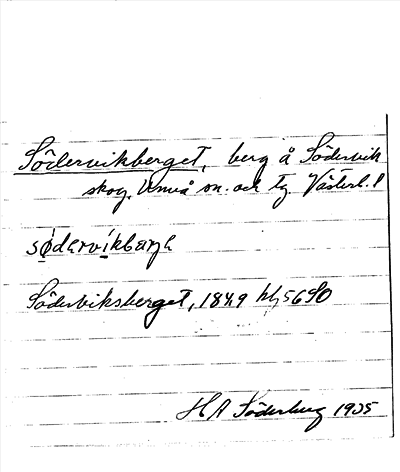 Södervikberget, berg å Södervik
skog, Umeå sn. och tg Västerb. l
södərvikbærjə
Söderviksberget, 1849 kbj 56 SO
H A Söderberg 1935